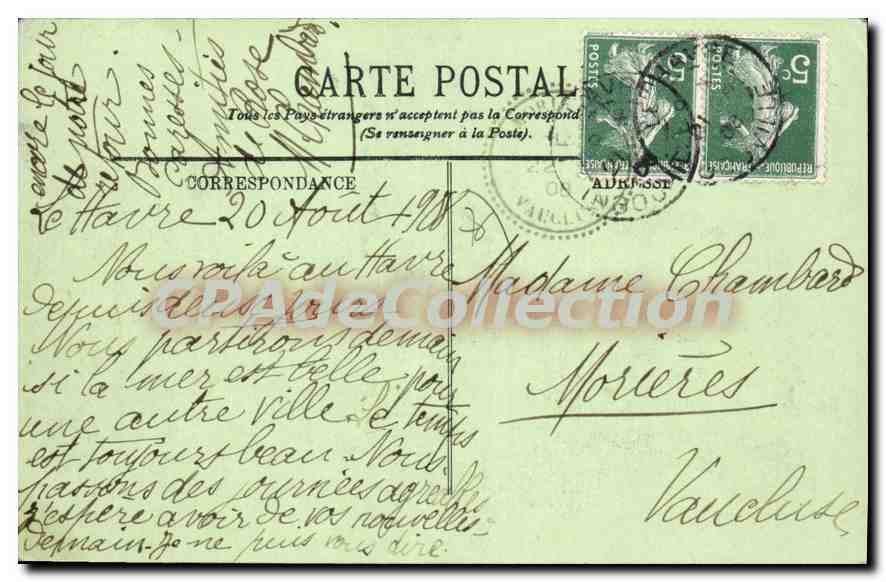 CARTE POSTALE
Tous les Pays étrangers n'acceptent pas la Correspond
(Se renseigner à la Poste).
CORRESPONDANCE
ADRESSE
Le Havre 20 Août 1908
Nous voilà au Havre
depuis deux jours
Nous partirons demain
si la mer est belle pour
une autre ville Le temps
est toujours beau. Nous
passons des journées agréables
j'espère avoir de vos nouvelles
demain. Je ne puis vous dire
encore le jour
de notre
retour
Bonnes
caresses
Amitiés
de Rose
Madame Chambard
Morières
Vaucluse
5c
POSTES
REPUBLIQUE FRANÇAISE
5c
POSTES
VAUCLUSE
CPAdeCollection